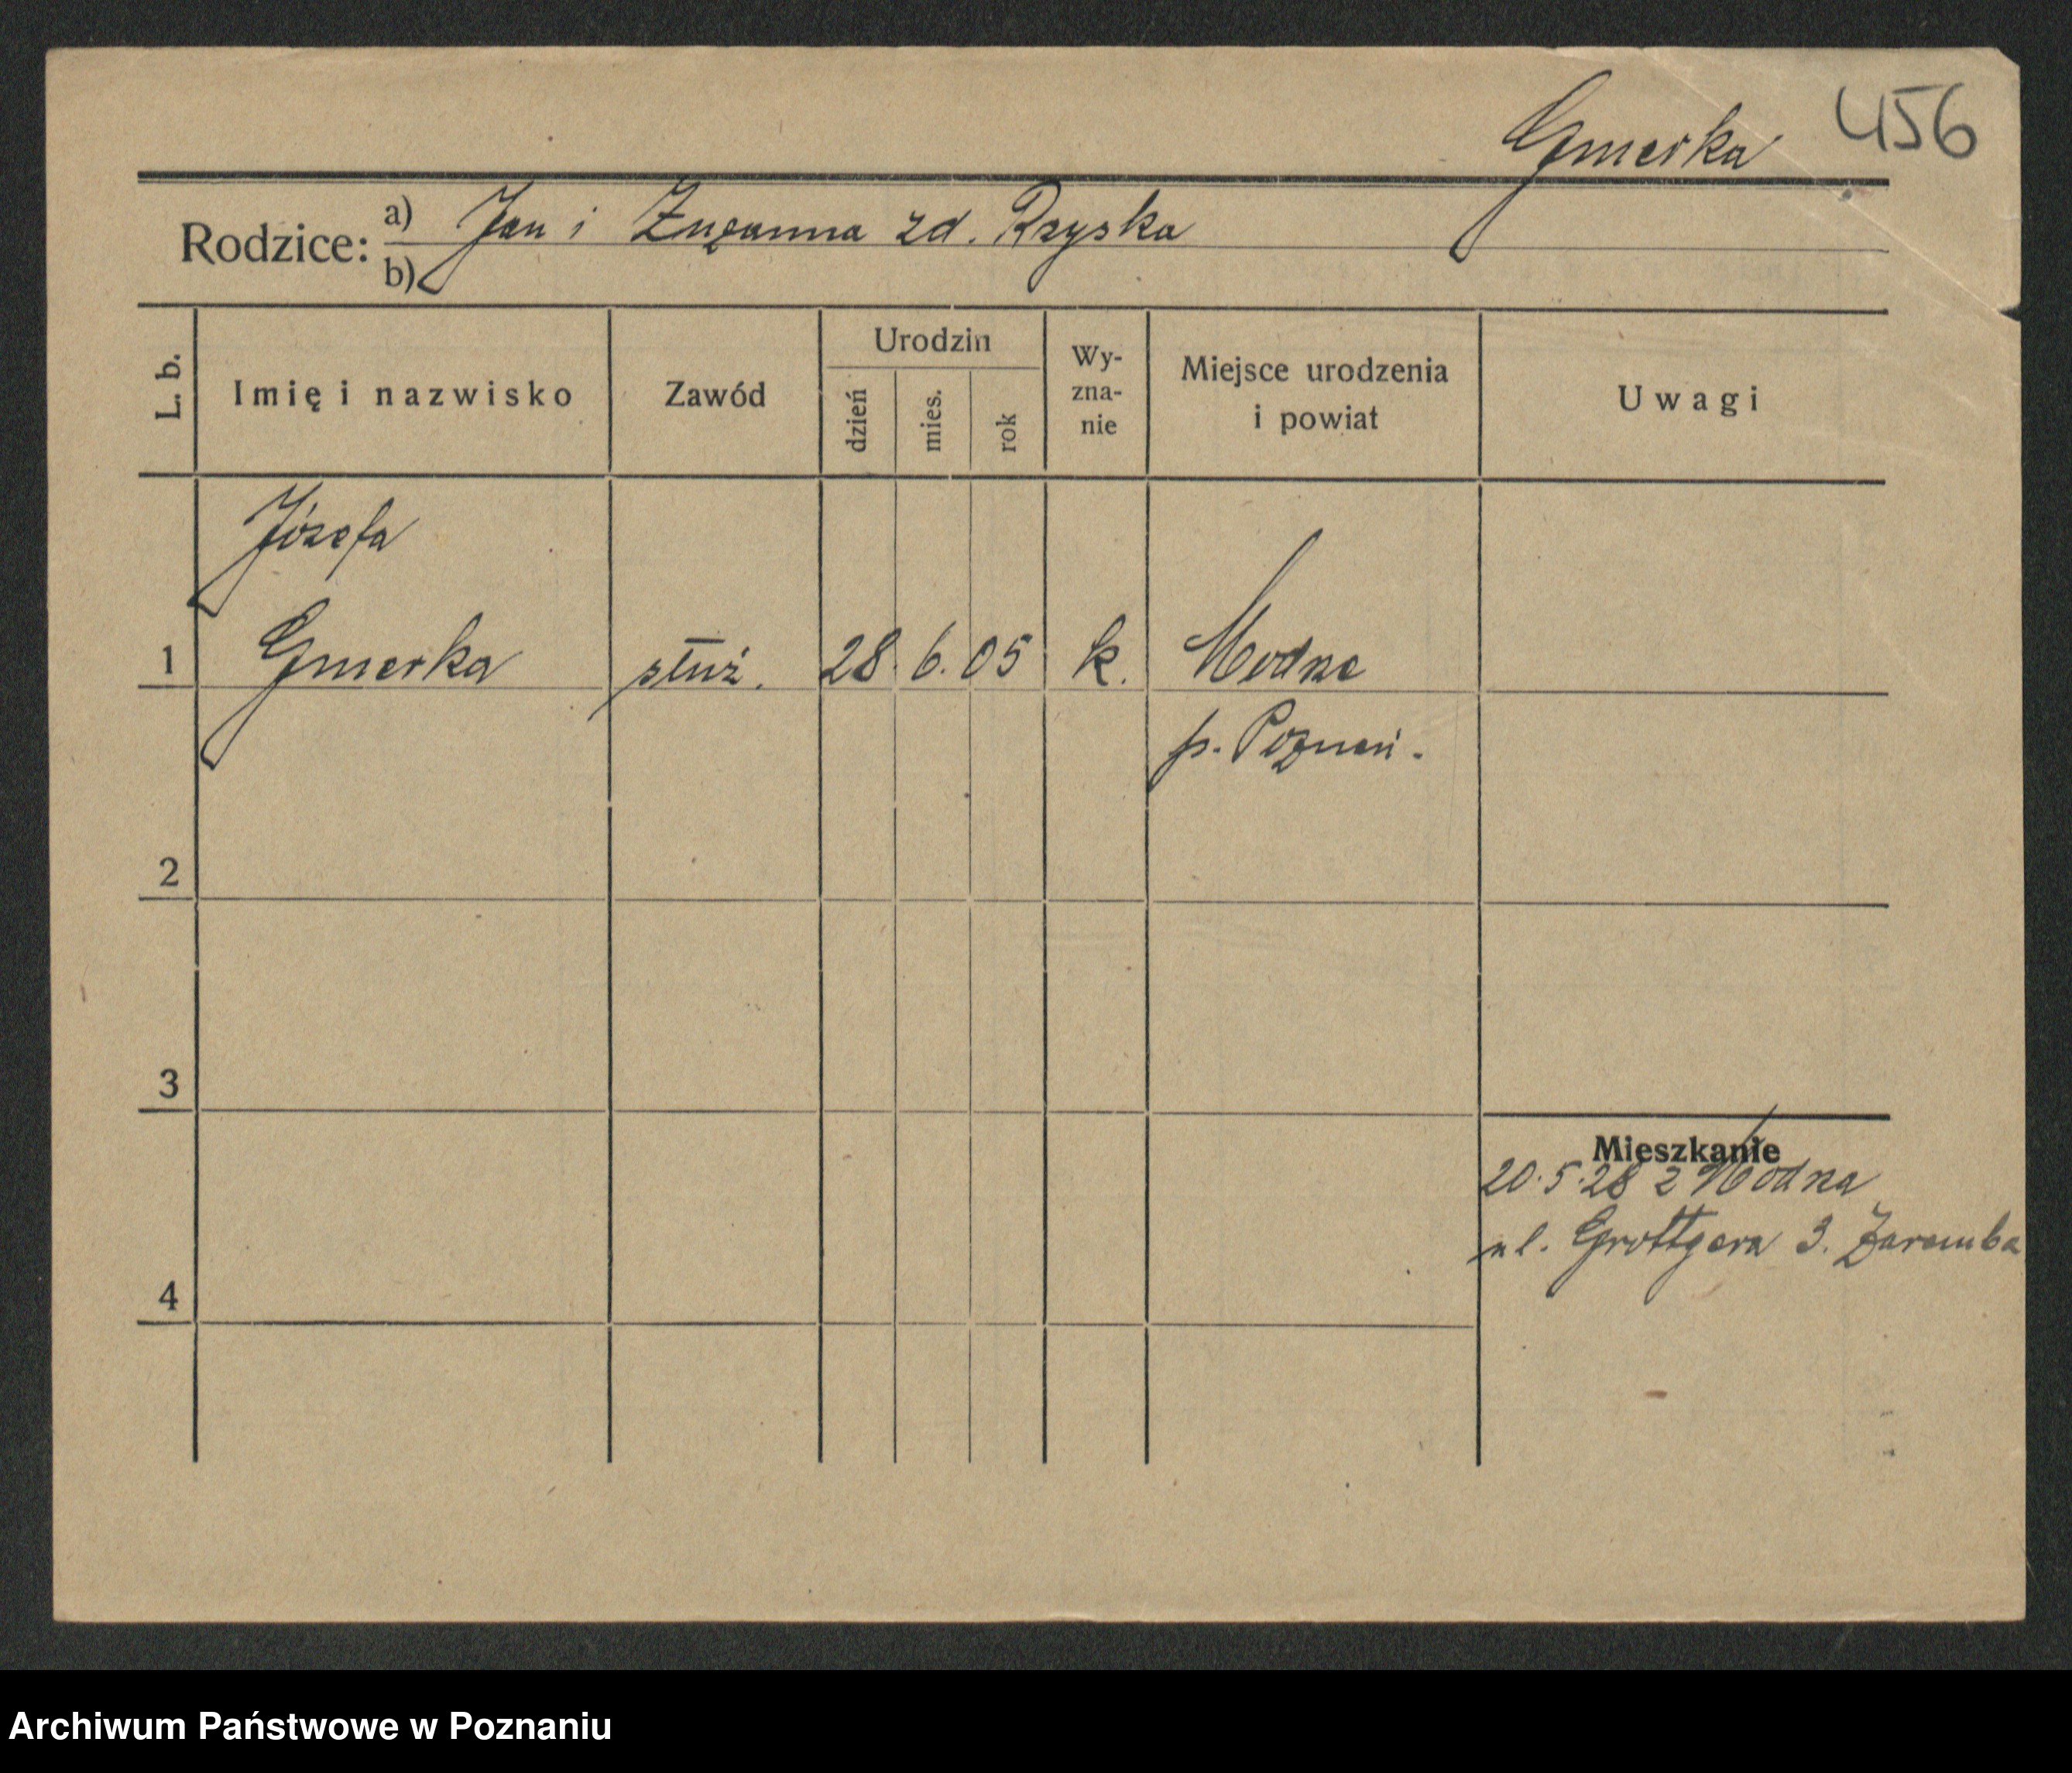 Gmerka 456
Rodzice: a) Jan i Zuzanna zd. Rzyska
b)
L. b. Imię i nazwisko Zawód Urodzin dzień mies. rok Wy-zna-nie Miejsce urodzenia i powiat Uwagi
Józefa
1 Gmerka służ. 28. 6. 05 k. Wodna
p. Poznań.
2
3
Mieszkanie
20.5.28 z
ul. Grottgera 3. Zaremba
4
Archiwum Państwowe w Poznaniu